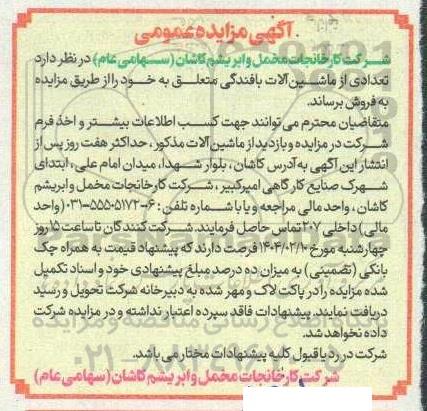 آگهی مزایده عمومی
شرکت کارخانجات مخمل و ابریشم کاشان (سهامی عام) در نظر دارد
تعدادی از ماشین‌آلات بافندگی متعلق به خود را از طریق مزایده
به فروش برساند.
متقاضیان محترم می توانند جهت کسب اطلاعات بیشتر و اخذ فرم
شرکت در مزایده و بازدید از ماشین آلات مذکور، حداکثر هفت روز پس از
انتشار این آگهی به آدرس کاشان، بلوار شهدا، میدان امام علی، ابتدای
شهرک صنایع کارگاهی امیرکبیر، شرکت کارخانجات مخمل و ابریشم
کاشان، واحد مالی مراجعه و یا با شماره تلفن: ۶-۰۳۱-۵۵۵۰۵۱۷۲ (واحد
مالی) داخلی ۲۰۷ تماس حاصل فرمایند. شرکت کنندگان تا ساعت ۱۵ روز
چهارشنبه مورخ ۱۴۰۴/۰۲/۱۰ فرصت دارند که پیشنهاد قیمت به همراه چک
بانکی (تضمینی) به میزان ده درصد مبلغ پیشنهادی خود و اسناد تکمیل
شده مزایده را در پاکت لاک و مهر شده به دبیرخانه شرکت تحویل و رسید
دریافت نمایند. پیشنهادات فاقد سپرده اعتبار نداشته و در مزایده شرکت
داده نخواهد شد.
شرکت در رد یا قبول کلیه پیشنهادات مختار می باشد.
شرکت کارخانجات مخمل و ابریشم کاشان (سهامی عام)